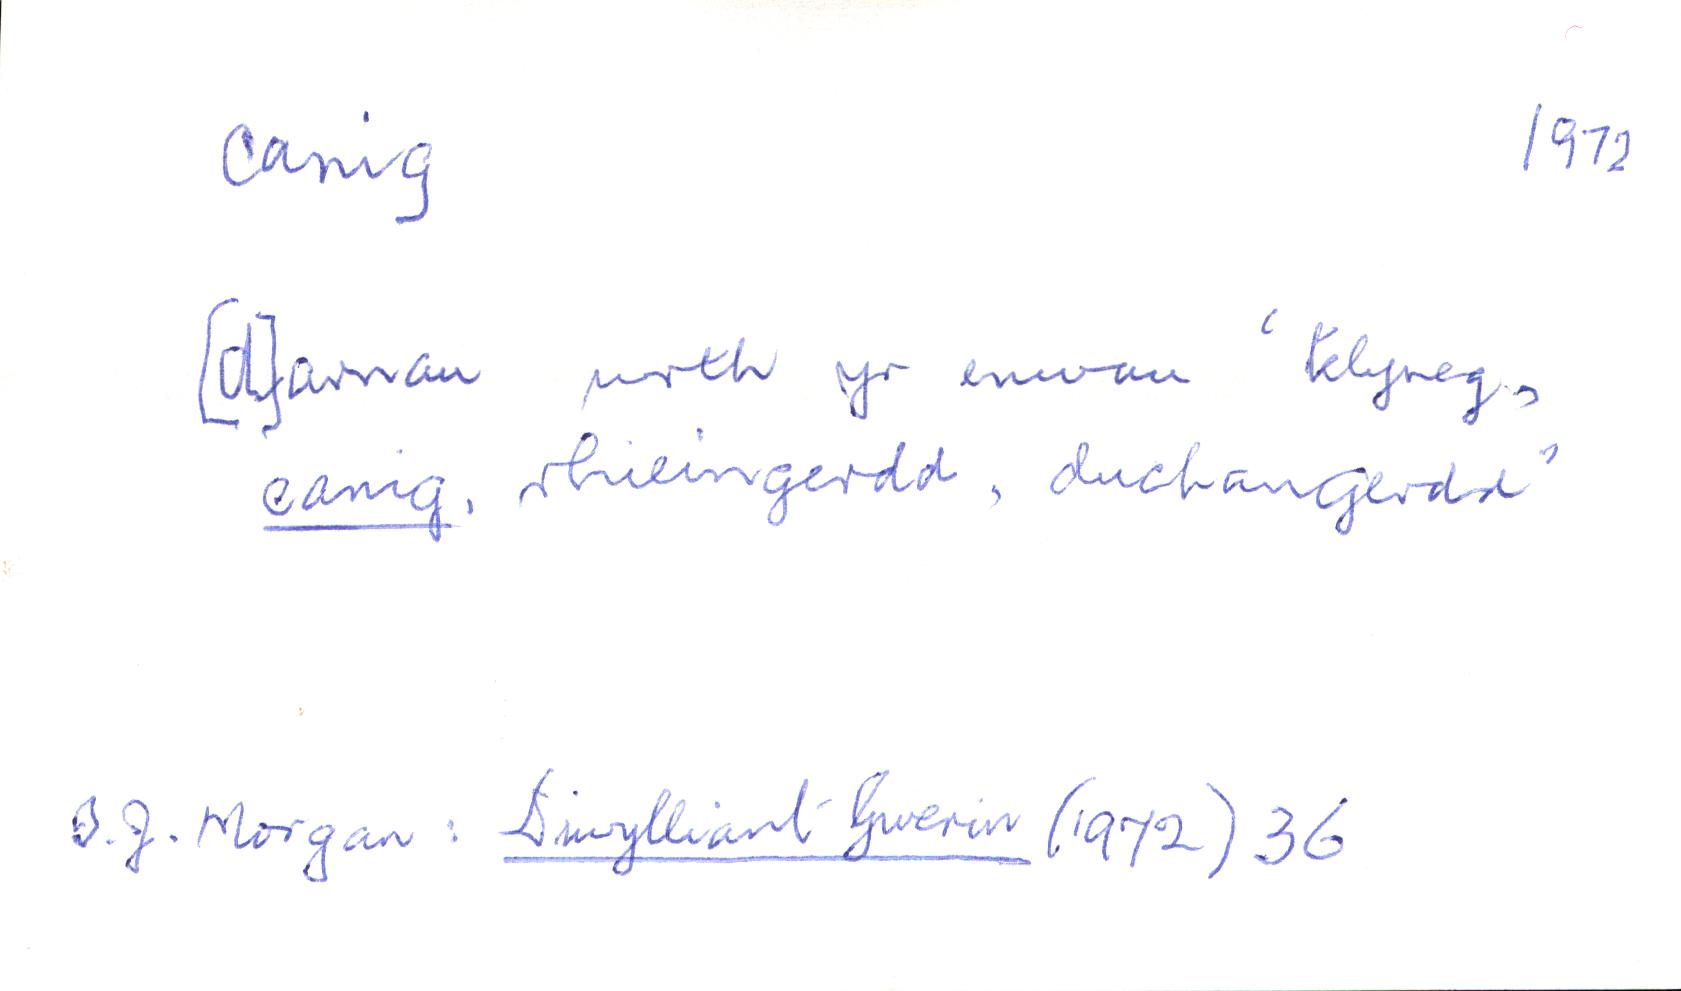 canig 1972
[d]arnau wrth yr enwau ‘telyneg,
canig, rhieingerdd, duchangerdd’
D. J. Morgan: Diwylliant Gwerin (1972) 36